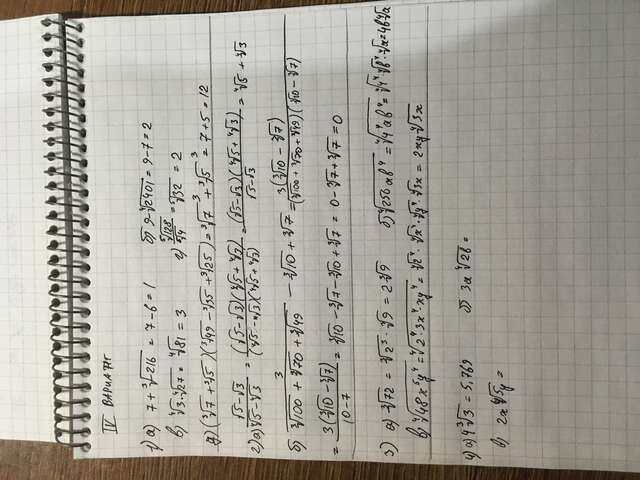 IV ВАРИАНТ
1) а) 7 + ∛-216 = 7 - 6 = 1 б) 9 - ⁴√2401 = 9 - 7 = 2
в) ⁴√3 · ⁴√27 = ⁴√81 = 3 г) ⁵√128 / ⁵√4 = ⁵√32 = 2
д) (∛7 + ∛5)(∛49 - ∛35 + ∛25) = ∛7³ + ∛5³ = 7 + 5 = 12
2) а) (√5 - √3) / (⁴√5 - ⁴√3) = (√5 - √3)(⁴√5 + ⁴√3) / (⁴√5 - ⁴√3)(⁴√5 + ⁴√3) = (√5 - √3)(⁴√5 + ⁴√3) / (√5 - √3) = ⁴√5 + ⁴√3
б) 3 / (∛100 + ∛70 + ∛49) - ∛10 + ∛7 = 3(∛10 - ∛7) / (∛100 + ∛70 + ∛49)(∛10 - ∛7)
= 3(∛10 - ∛7) / (10 - 7) = ∛10 - ∛7 - ∛10 + ∛7 = 0 - ∛7 + ∛7 = 0
3) а) ∛72 = ∛2³ · ∛9 = 2∛9 б) ⁴√256ab⁴ = ⁴√4⁴ab⁴ = ⁴√4⁴ · ⁴√b⁴ · ⁴√a = 4b⁴√a
в) ⁴√48x⁵y⁴ = ⁴√2⁴ · 3x⁴ · xy⁴ = ⁴√2⁴ · ⁴√x⁴ · ⁴√y⁴ · ⁴√3x = 2xy⁴√3x
4) а) 4∛3 = 5,769 б) 3a⁴√2b =
в) 2x⁴√5y =